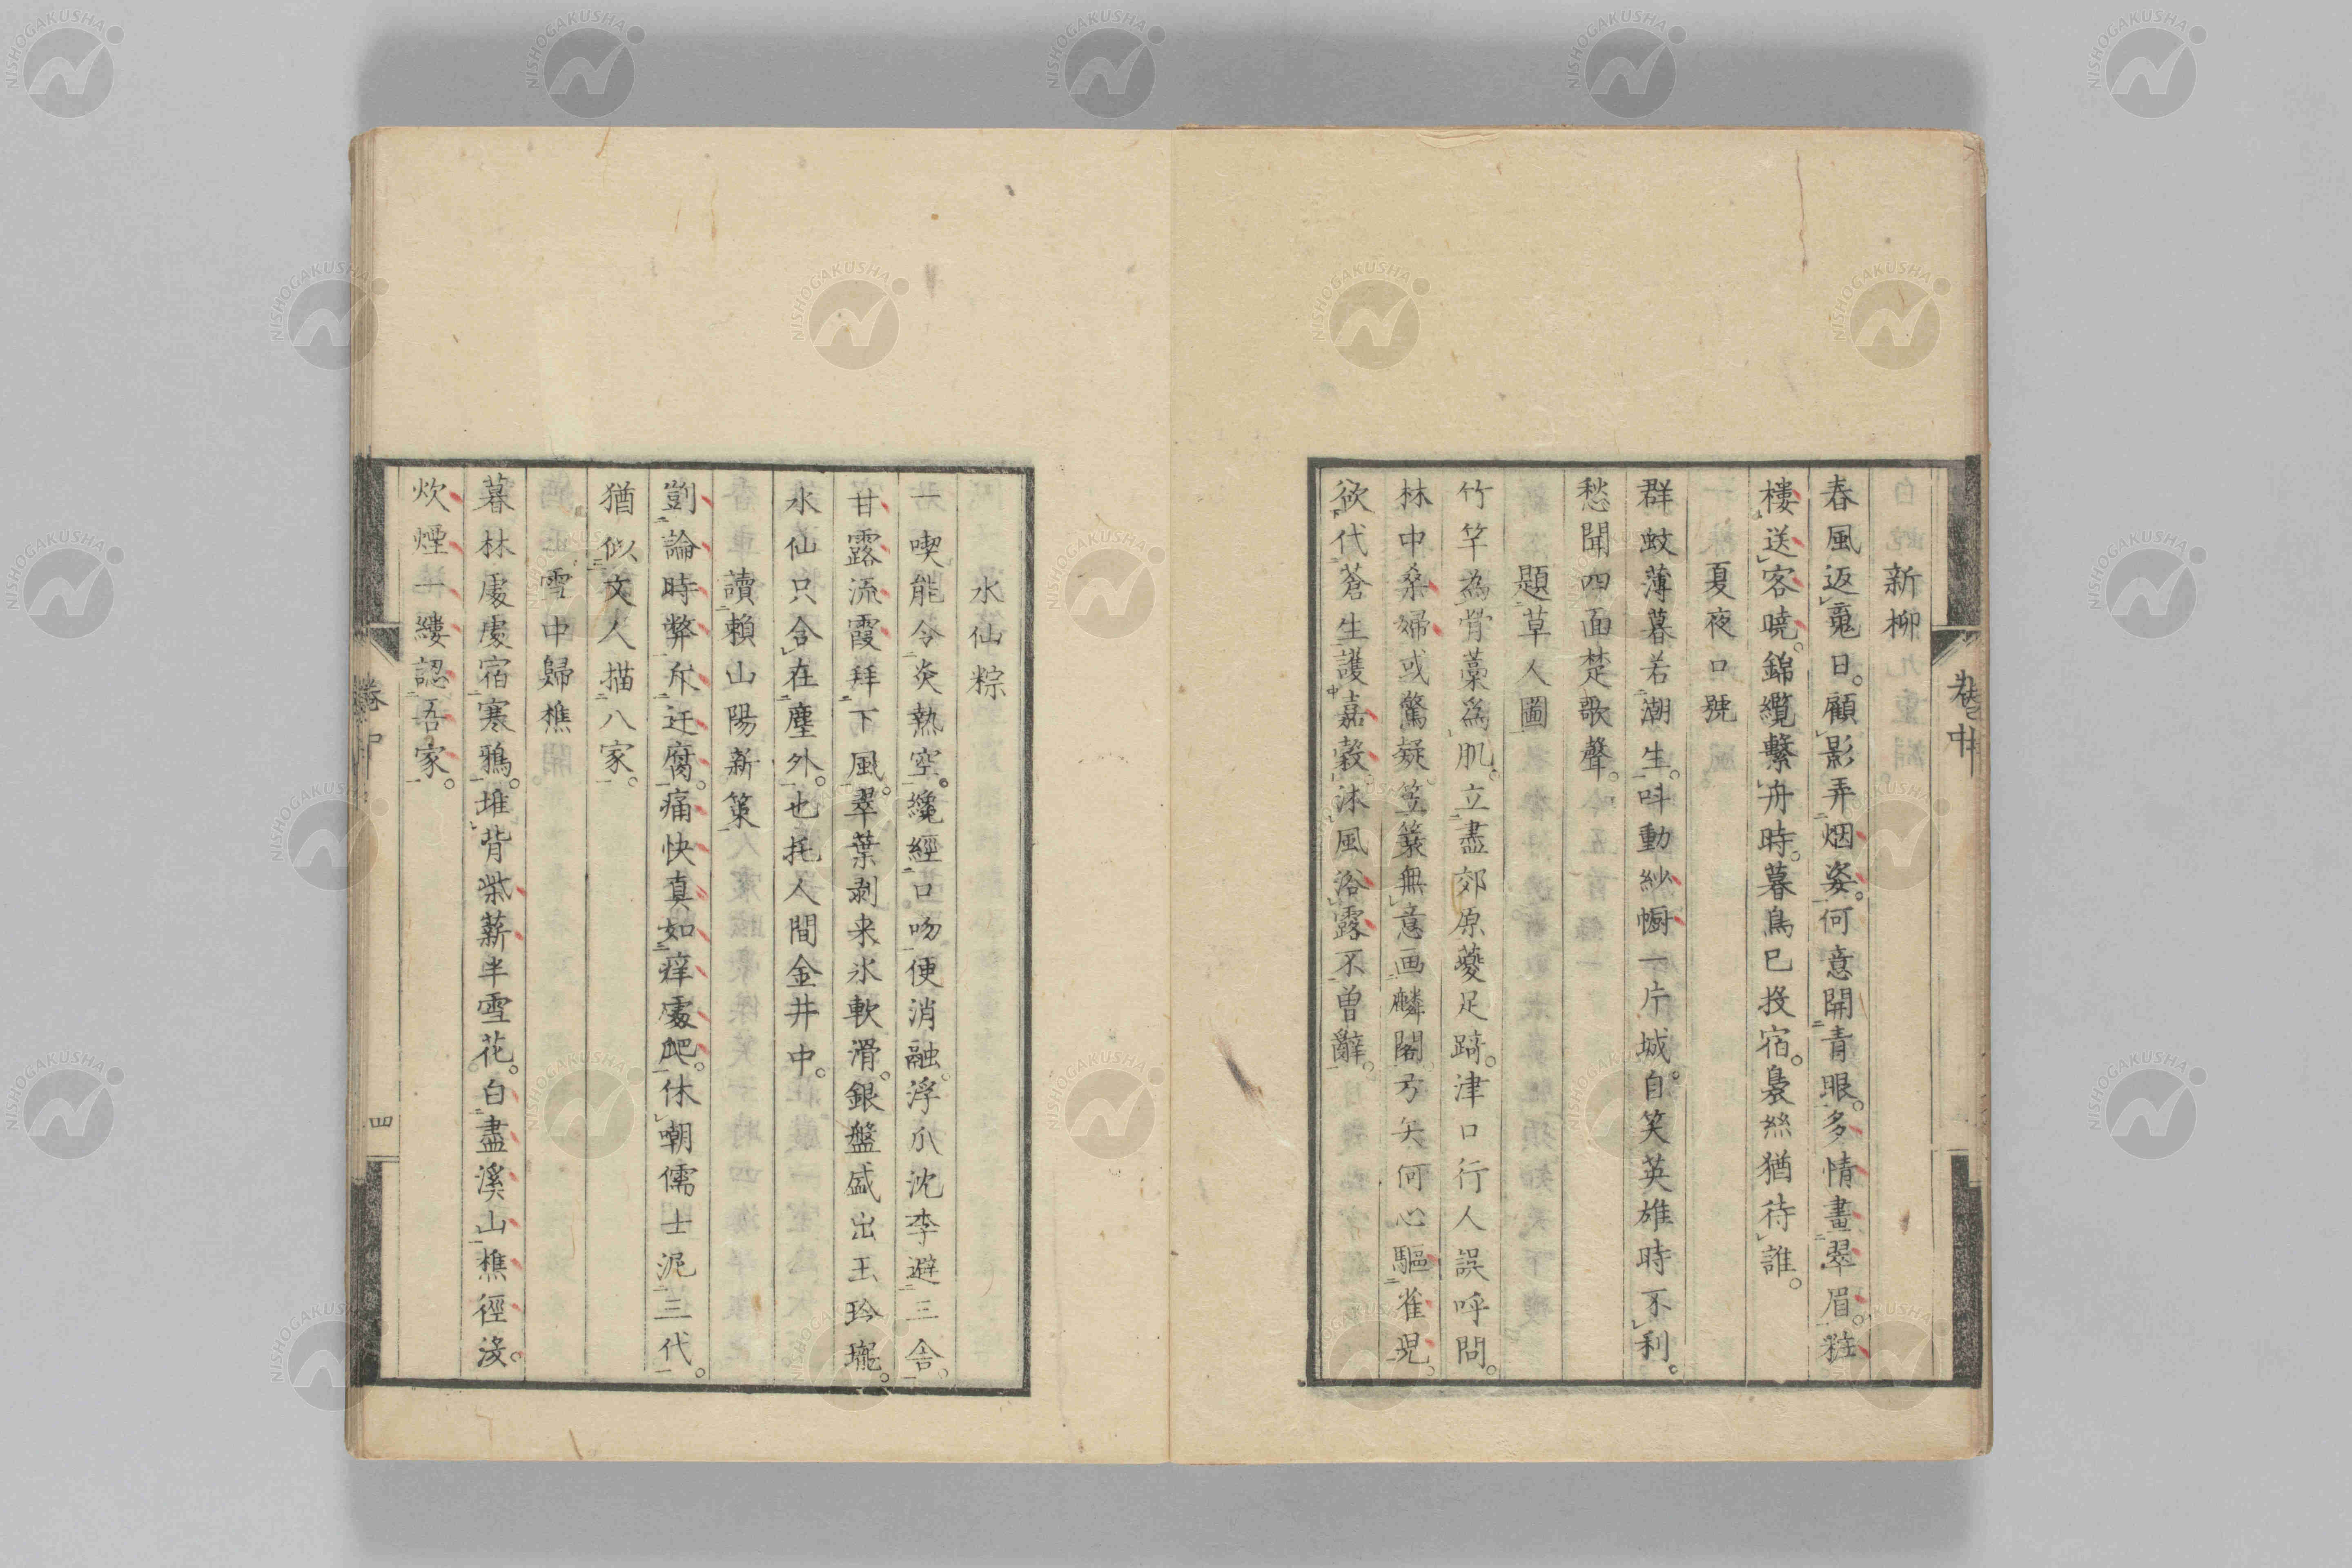 新柳
春風返竄日。顧影弄烟姿。何意開青眼。多情畫翠眉。粧
樓送客曉。錦纜繫舟時。暮鳥已投宿。裊絲猶待誰。
夏夜口號
群蚊薄暮若潮生。呌動紗幮一片城。自笑英雄時不利。
愁聞四面楚歌聲。
題草人圖
竹竿為骨藁爲肌。立盡郊原夔足踦。津口行人誤呼問。
林中桑婦或驚疑。笠簑無意画麟閣。弓矢何心驅雀兒。
欲代蒼生護嘉穀。沐風浴露不曽辭。
卷中
水仙粽
一喫能令炎熱空。纔經口吻便消融。浮爪沈李避三舍。
甘露流霞拜下風。翠葉剥来氷軟滑。銀盤盛出玉玲瓏。
水仙只合在塵外。也托人間金井中。
讀賴山陽新策
剴論時弊斥迂腐。痛快真如痒處爬。休嘲儒士泥三代。
猶似文人描八家。
雪中歸樵
暮林處處宿寒鴉。堆背柴薪半雪花。白盡溪山樵徑没。
炊煙一縷認吾家。
卷中
四
NISHOGAKUSHA